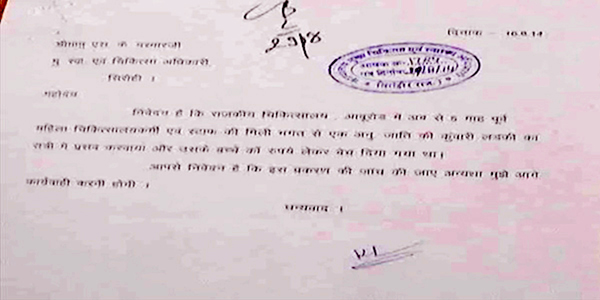 29/8
दिनाक - 16.8.14
श्रीमान् एस के परमारजी
मु स्वा एवं चिकित्सा अधिकारी,
सिरोही ।
महोदय
निवेदन है कि राजकीय चिकित्सालय , आबूरोड में अब से 5 माह पूर्व
महिला चिकित्सालयकर्मी एवं स्टाफ की मिली भगत से एक अनु. जाति की कुंवारी लडकी का
रात्री में प्रसव करवाया और उसके बच्चे को रुपये लेकर बेच दिया गया था।
आपसे निवेदन है कि इस प्रकरण की जांच की जाए अन्यथा मुझे आगे
कार्यवाही करनी होगी ।
धन्यवाद ।